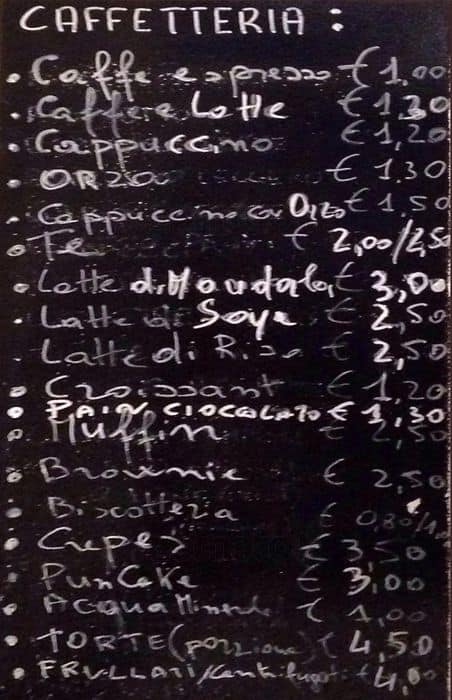 CAFFETTERIA :
• Caffe espresso € 1.00
• Caffe e Latte € 1,30
• Cappuccino € 1,20
• ORZO € 1.30
• Cappuccino con Orzo € 1.50
• Te € 2,00/2,50
• Latte di Mandorla € 3,00
• Latte di Soya € 2,50
• Latte di Riso € 2,50
• Croissant € 1,20
• PAIN CIOCCOLATO € 1,30
• Muffin € 2,50
• Brownie € 2,50
• Biscotteria € 0,80/
• Crepes € 3,50
• PunCake € 3,00
• ACQUA Minerale € 1,00
• TORTE (porzione) € 4,50
• FRULLATI/Centrifugati € 4,00